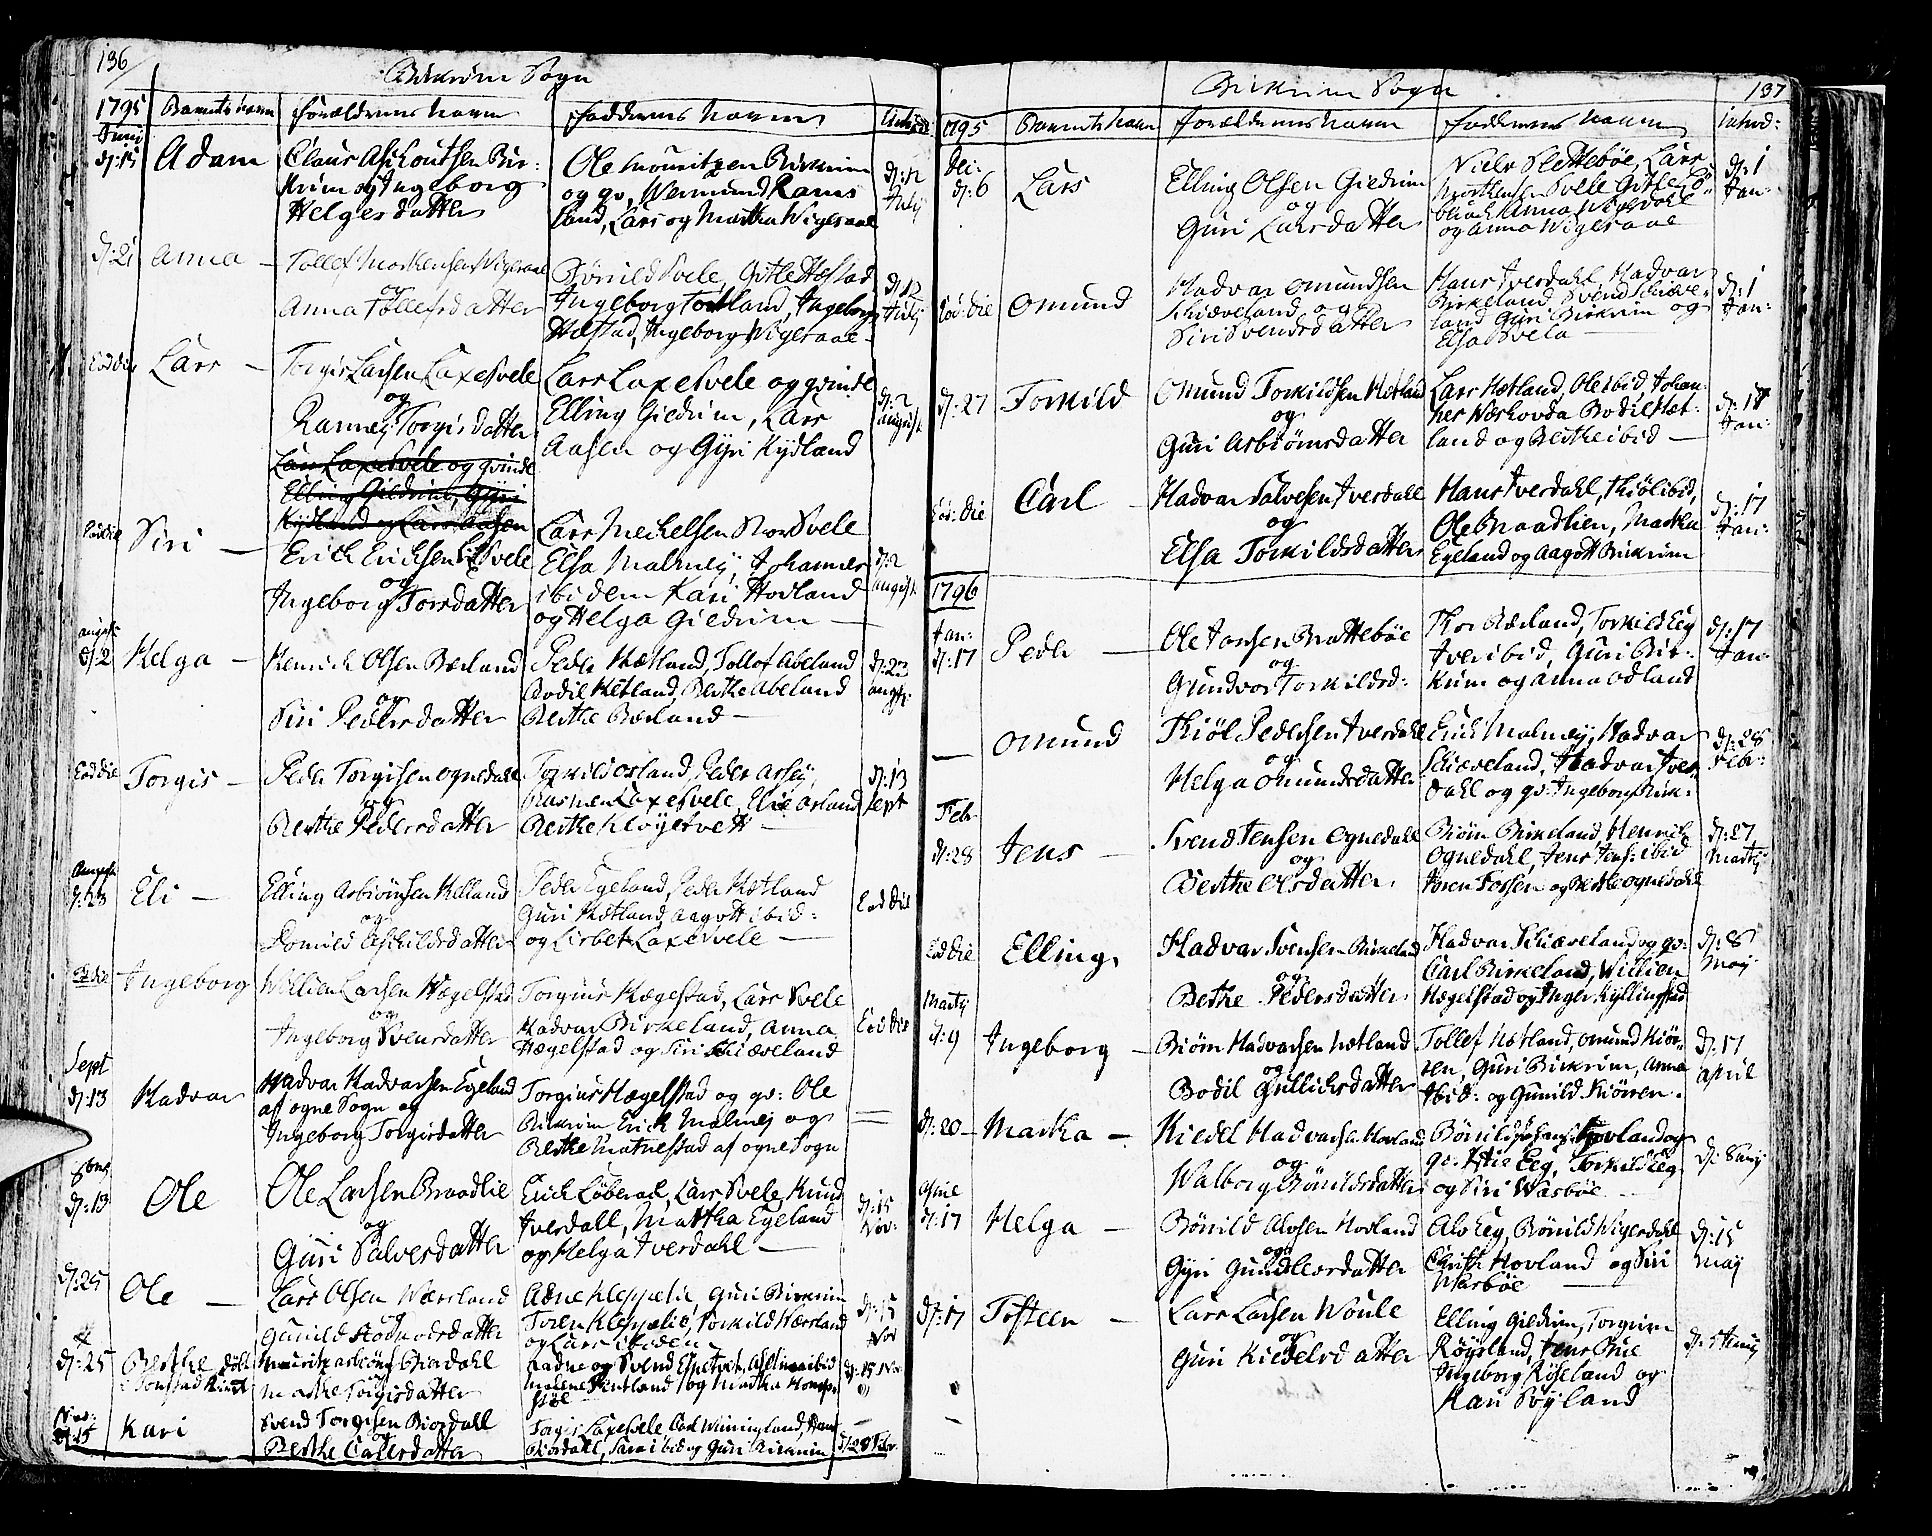 136
Birkrim Sogn
1795 Barnets navn Forældrenes navn Faddernes navne Introd:
Junij
d: 15 Adam Claus Aschoutsen Bir-
krim og Ingeborg
Helgesdatter
Ole Mouritzen Birkrim
og qv, Wermund Rams
land, Lars og Martha Wigesaae
d: 12
July
d: 21 Anna – Tollef Morthensen Wigesaae
og
Anna Tollefsdatter
Bönild Svele, Gitle Hæstad
Ingeborg Tortland, Ingeborg
Hæstad, Ingeborg Wigesaae –
d: 12
July
Eod die Lars – Torgis Larsen Laxesvele
og
Ranney Torgisdatter
Lars Laxesvele og qvinde
Elling Giedrim, Lars
Aasen og Gyri Kydland
d: 2
August
Lars Laxesvele og qvinde
Elling Giedrim, Gyri
Kydland og Lars Aasen
Eod die Siri – Erich Erichsen Svele
og
Ingeborg Torsdatter
Lars Michelsen Svele
Elsa Malmey, Johannes
ibidem Kari Hovland
og Helga Giedrim –
d: 2
August
August
d: 2 Helga – Henrich Olsen Bærland
og
Siri Pedersdatter
Peder Hætland, Tollof Abeland
Bodil Hetland, Berthe Abeland
Berthe Bærland –
d: 23
August
Eod die Torgis – Peder Torgisen Ognedahl
og
Berthe Pedersdatter
Torkild Osland, Peder Assey,
Rasmus Laxesvele, Elie Osland
Berthe Kløgetvett –
d: 13
Sept
August
d: 23 Eli – Elling Asbiönsen Hetland
og
Aschildsdatter
Peder Egeland, Peder Hætland
Guri Hetland, Aagott ibid:
og Lisbet Laxesvele –
Eod die
Eod die Ingeborg Willien Larsen Hægelstad
og
Ingeborg Svensdatter
Torgius Hægestad, Lars Svele
Hadvar Birkeland, Anna
Hægelstad og Siri Skiæveland
Eod die
Sept
d: 13 Hadvar Hadvar Hadvarsen Egeland
af Ogne Sogn og
Ingeborg Torgisdatter
Torgius Hægelstad og qv: Ole
Birkrim Erich Malmey og
Berthe Matnestad af Ogne Sogn
d: 13 Ole Ole Larsen Braadlie
og
Guri Salvesdatter
Erich Løberad, Lars Svele, Knud
Iverdall, Martha Egeland
og Helga Iverdahl –
d: 15
Nov:
d: 25 Ole – Lars Olsen Wærsland
og
Gunild datter
Adne Kleppelie, Guri Birkrim
Soren Kleppelie, Torkild Wærsland
og Lars ibidem
d: 15
Nov
d: 25 Berthe Mauritz Asbiöns: Biordahl
Marthe Torgisdatter
Aadne og Svend Egetvet, ibid
Malene Hentland og Martha
d: 15 Nov
Nov:
d: 15 Kari Svend Torgisen Biordall
og
Berthe Carlsdatter
Torgis Laxesvele, Carl Winingland,
Biordall, Sara ibid og Guri Birkrim
d: 28 Febr.
137
Birkrim Sogn
1795 Barnets navn Forældrenes navn Faddernes navne Introd:
d: 6 Lars Elling Olsen Giedrim
og
Guri Larsdatter
Niels Slettebøe, Lars
Morthensen Svele Gitle
Anna Wigesdahl
og Anna Wigesaae
d: 1
Jan:
Eod: die Omund Hadvar Omundsen
Skiæveland og
Siri Svendsdatter
Hans Iverdahl, Hadvar
Birkeland, Svend Skiæve-
land Guri Birkrim og
Elsa Svela –
d: 1
Jan:
d: 27 Torkild Omund Torkildsen Hetland
og
Guri Asbiörnsdatter
Lars Hetland, Ole ibid, Johan-
nes Bodil Het-
land og Berthe ibid –
d: 17
Jan:
Eod: die Carl – Hadvar Salvesen Iverdahl
og
Elsa Torkildsdatter
Hans Iverdahl, Thiöl ibid,
Ole Braadlien, Martha
Egeland og Aagott Birkrim
d: 17
Jan:
1796
Jan:
d: 17 Peder – Ole Jansen Brattebøe
og
Gundvor Torkildsd:
Thor Bærland, Torkild Eeg
Iver ibid, Guri Bir-
krim og Anna Odland
d: 17
Jan:
– Omund Thiöl Pedersen Iverdahl
og
Helga Omundsdatter
Erich Malmey, Hadvar
Skiæveland, Hadvar Iver
dahl og qv: Ingeborg Birk:
d: 28
Febr:
Febr
d: 28 Jens – Svend Jensen Ognedahl
og
Berthe Olsdatter
Biörn Birkeland, Henrich
Ognedahl, Jens Jens: ibid
Soren Fossen og Berthe Ognedahl
d: 27
Martij
Eod die Elling Hadvar Svensen Birkeland
og
Berthe Pedersdatter
Hadvar Skiæveland og qv:
Carl Birkeland, Willien
Hægelstad og Inger Kyllingstad
d: 8
May
Martij
d: 9 Ingeborg – Biörn Hadvarsen Hetland
og
Bodil Gullichsdatter
Tollef Hetland, Omund Kiör-
ren, Guri Birkrim, Anna
ibid: og Gunild Kiörren.
d: 17
April
d: 20 – Martha – Kiedel Hadvarsen Hovland
og
Walborg Bönildsdatter
Bönild Hovland og
qv: Eeg, Torkild Eeg
og Siri Wasbøe –
d: 8 May
April
d: 17 Helga – Bönild Alvsen Hovland
og
Gyri Gundlesdatter
Alv Eeg, Bönild Wigesdahl
Hovland og Siri
Wasbøe –
d: 15
May
d: 17 Tosteen – Lars Larsen Woule
og
Guri Kiedelsdatter
Elling Giedrim, Torgrim
Röysland, Jens
Ingeborg Röseland og
Kari Söyland
d: 5 Junij